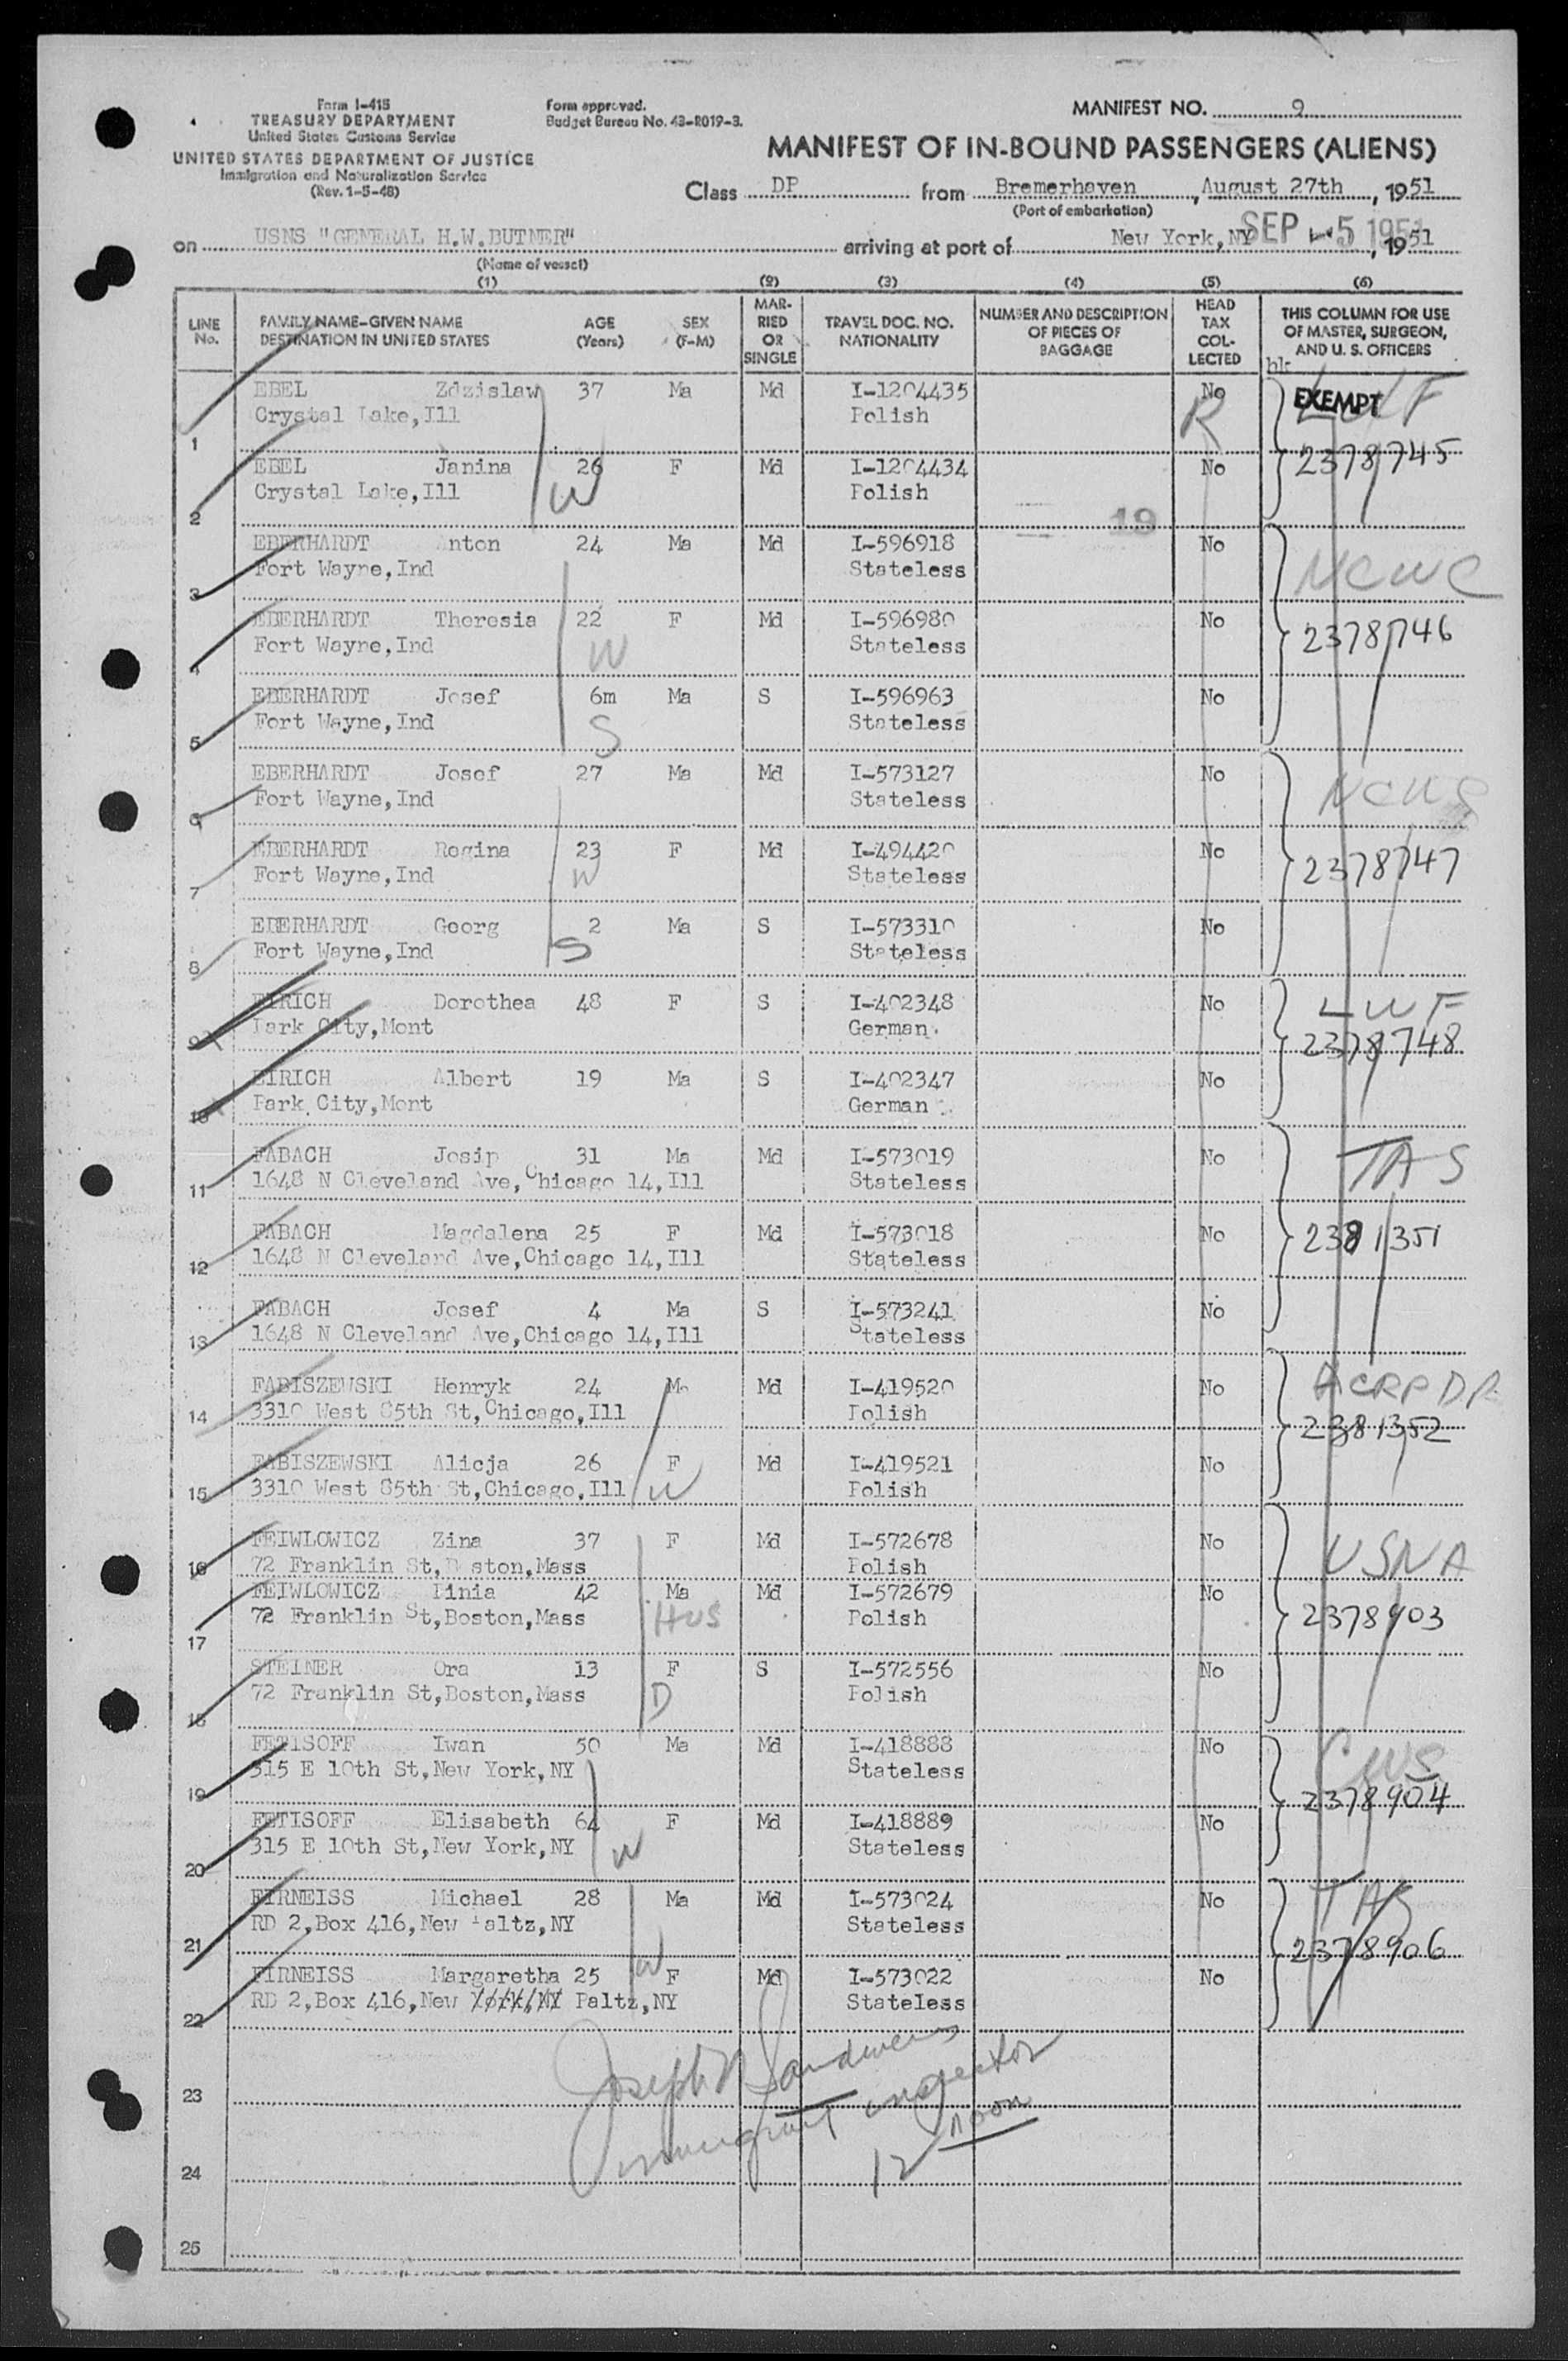 Form I-415
TREASURY DEPARTMENT
United States Customs Service
UNITED STATES DEPARTMENT OF JUSTICE
Immigration and Naturalization Service
(Rev. 1-5-48)
Form approved.
Budget Bureau No. 43-R019-3.
MANIFEST NO. 9
MANIFEST OF IN-BOUND PASSENGERS (ALIENS)
Class DP from Bremerhaven, August 27th, 1951
(Port of embarkation)
on USNS "GENERAL H.W.BUTNER" arriving at port of New York,NY SEP 5 1951, 1951
(Name of vessel)
(1) (2) (3) (4) (5) (6)
LINE No. FAMILY NAME-GIVEN NAME DESTINATION IN UNITED STATES AGE (Years) SEX (F-M) MARRIED OR SINGLE TRAVEL DOC. NO. NATIONALITY NUMBER AND DESCRIPTION OF PIECES OF BAGGAGE HEAD TAX COLLECTED THIS COLUMN FOR USE OF MASTER, SURGEON, AND U. S. OFFICERS
EBEL Zdzislaw 37 Ma Md I-1204435 No EXEMPT LWF
1 Crystal Lake,Ill Polish R
EBEL Janina 26 F Md I-1204434 No 2378745
2 Crystal Lake,Ill W Polish
19
EBERHARDT Anton 24 Ma Md I-596918 No NCWC
3 Fort Wayne,Ind Stateless
EBERHARDT Theresia 22 F Md I-596980 No 2378746
4 Fort Wayne,Ind W Stateless
EBERHARDT Josef 6m Ma S I-596963 No
5 Fort Wayne,Ind S Stateless
EBERHARDT Josef 27 Ma Md I-573127 No NCWC
6 Fort Wayne,Ind Stateless
EBERHARDT Regina 23 F Md I-494420 No 2378747
7 Fort Wayne,Ind W Stateless
EBERHARDT Georg 2 Ma S I-573310 No
8 Fort Wayne,Ind S Stateless
EIRICH Dorothea 48 F S I-402348 No LWF
9 Park City,Mont German 2378748
EIRICH Albert 19 Ma S I-402347 No
10 Park City,Mont German
FABACH Josip 31 Ma Md I-573019 No TAS
11 1648 N Cleveland Ave,Chicago 14,Ill Stateless
FABACH Magdalena 25 F Md I-573018 No 2381351
12 1648 N Cleveland Ave,Chicago 14,Ill Stateless
FABACH Josef 4 Ma S I-573241 No
13 1648 N Cleveland Ave,Chicago 14,Ill Stateless
FABISZEWSKI Henryk 24 Ma Md I-419520 No ACRPDP
14 3310 West 85th St,Chicago,Ill Polish 2381352
FABISZEWSKI Alicja 26 F Md I-419521 No
15 3310 West 85th St,Chicago,Ill W Polish
FEIWLOWICZ Zina 37 F Md I-572678 No USNA
16 72 Franklin St,Boston,Mass Polish
FEIWLOWICZ Pinia 42 Ma Md I-572679 No
17 72 Franklin St,Boston,Mass HUS Polish 2378903
STEINER Ora 13 F S I-572556 No
18 72 Franklin St,Boston,Mass D Polish
FETISOFF Iwan 50 Ma Md I-418888 No CWS
19 315 E 10th St,New York,NY Stateless 2378904
FETISOFF Elisabeth 64 F Md I-418889 No
20 315 E 10th St,New York,NY W Stateless
FIRNEISS Michael 28 Ma Md I-573024 No TAS
21 RD 2,Box 416,New Paltz,NY Stateless 2378906
FIRNEISS Margaretha 25 W F Md I-573022 No
22 RD 2,Box 416,New York,NY Paltz,NY Stateless
Immigrant inspector
12 noon
23
24
25